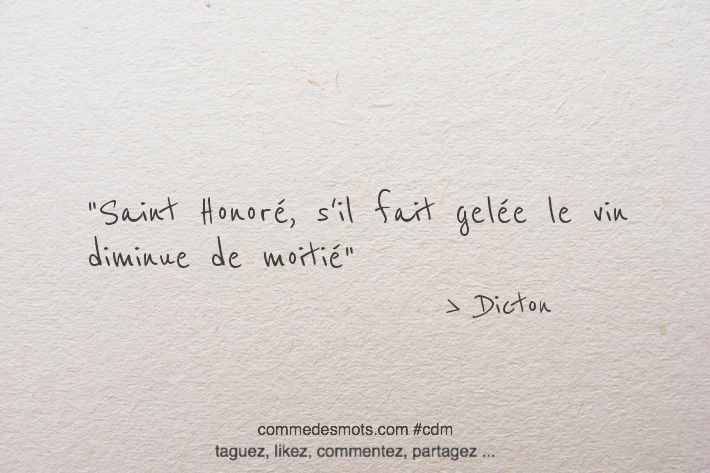 "Saint Honoré, s'il fait gelée le vin
diminue de moitié"
> Dicton
commedesmots.com #cdm
taguez, likez, commentez, partagez ...